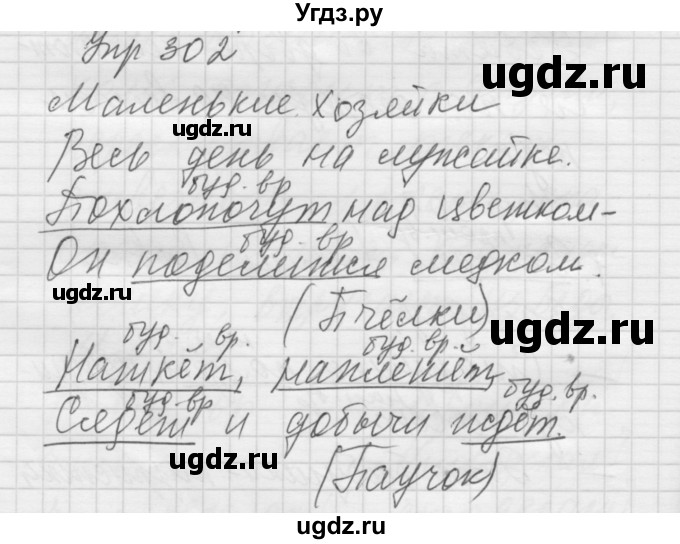 Угдз.ру
Упр 302
ugdz.ru
Маленькие хозяйки
ugdz.ru
Весь день на лужайке.
буд. вр.
Похлопочут над цветком –
буд. вр.
Он поделится медком.
ugdz.ru
(Пчёлки)
ugdz.ru
буд. вр. буд. вр.
Наткёт, наплетёт,
буд. вр. буд. вр.
Сядет и добычи ждёт.
ugdz.ru
(Паучок)
ugdz.ru
ugdz.ru